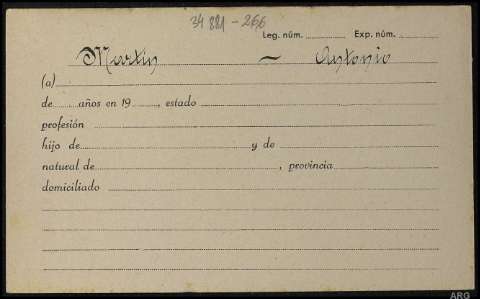 34881-266
Leg. núm. Exp. núm.
Martin — Antonio
(a)
de años en 19 , estado
profesión
hijo de y de
natural de , provincia
domiciliado
ARG